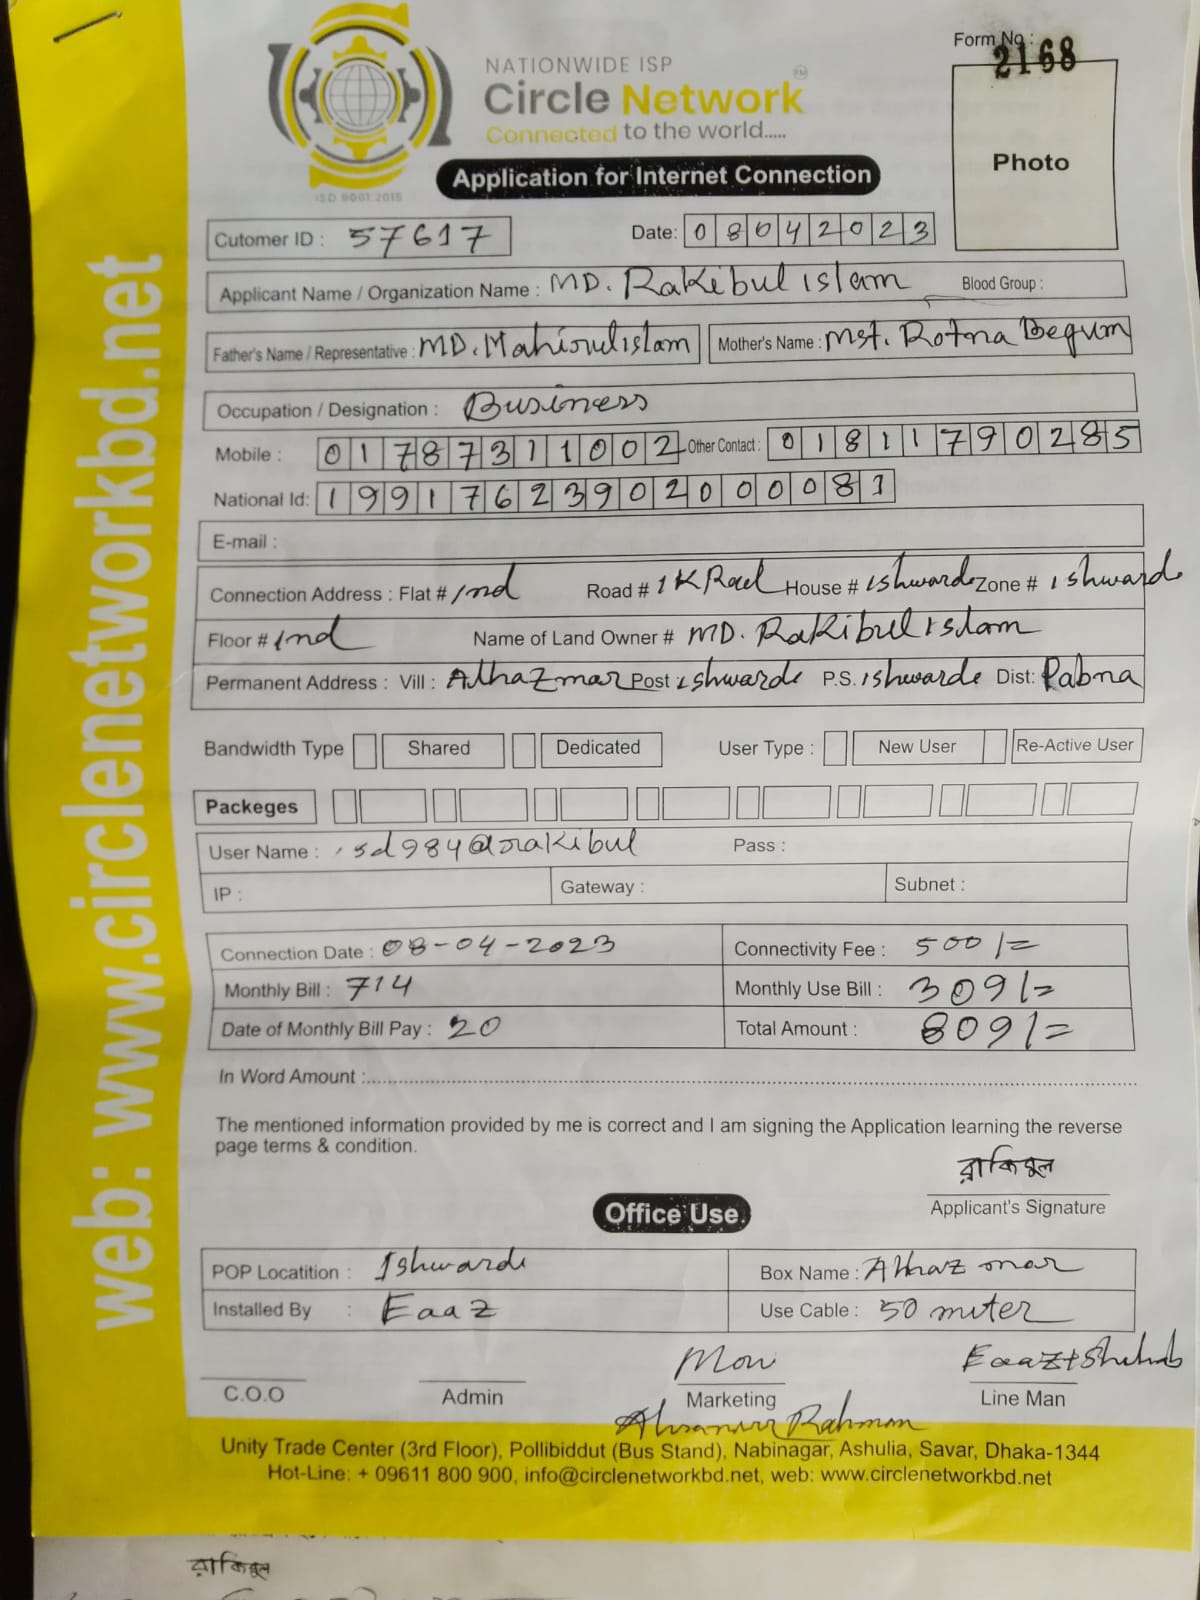 Form No : 2168
NATIONWIDE ISP
Circle Network TM
Connected to the world.....
ISO 9001:2015
Application for Internet Connection
Photo
Cutomer ID : 57617 Date: 08042023
Applicant Name / Organization Name : MD. Rakibul islam Blood Group :
Father's Name / Representative : MD. Mahirul islam Mother's Name : Mst. Rotna Begum
Occupation / Designation : Business
Mobile : 01787311002 Other Contact : 01811790285
National Id: 19917623902000081
E-mail :
Connection Address : Flat # 1nd Road # 1K Road House # ishwarde Zone # ishwarde
Floor # 1nd Name of Land Owner # MD. Rakibul islam
Permanent Address : Vill : Alhazmar Post ishwarde P.S. ishwarde Dist: Pabna
Bandwidth Type Shared Dedicated User Type : New User Re-Active User
Packeges
User Name : isd984@rakibul Pass :
IP : Gateway : Subnet :
Connection Date : 08-04-2023 Connectivity Fee : 500/=
Monthly Bill : 714 Monthly Use Bill : 309/=
Date of Monthly Bill Pay : 20 Total Amount : 809/=
In Word Amount :
The mentioned information provided by me is correct and I am signing the Application learning the reverse
page terms & condition.
রাকিবুল
Applicant's Signature
Office Use.
POP Locatition : Ishwardi Box Name : Alhaz mar
Installed By : Eaaz Use Cable : 50 miter
Mow Eaaz+Shihab
C.O.O Admin Marketing Line Man
Rahman
Unity Trade Center (3rd Floor), Pollibiddut (Bus Stand), Nabinagar, Ashulia, Savar, Dhaka-1344
Hot-Line: + 09611 800 900, info@circlenetworkbd.net, web: www.circlenetworkbd.net
web: www.circlenetworkbd.net
রাকিবুল